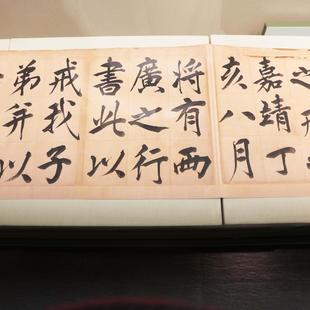 之
嘉靖丁
亥八月
将有西
廣之行
書此以
戒我子
弟并以